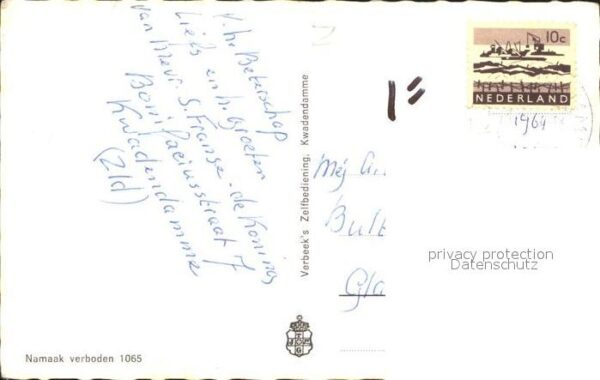 V. h. Beterschap
Liefs en h. groeten
van Mevr. S. Franse-de Koning
Bonifaciusstraat 7
Kwadendamme
(Zld)
Verbeek's Zelfbediening, Kwadendamme
10c
NEDERLAND
1964
1=
Mej
Bul
Gla
privacy protection
Datenschutz
Namaak verboden 1065